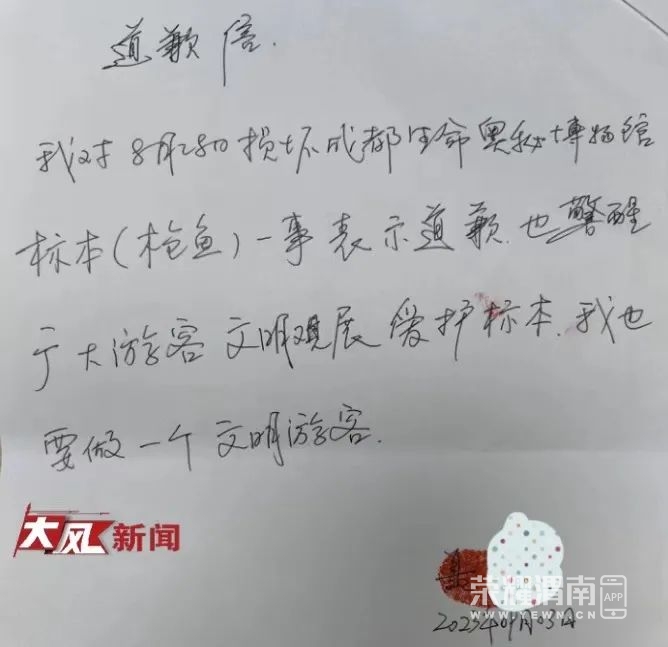 道歉信.
我对8月28日损坏成都生命奥秘博物馆
标本(枪鱼)一事表示道歉.也警醒
广大游客文明观展爱护标本.我也
要做一个文明游客.
大风新闻
荣耀渭南 APP
WWW.YEWN.CN
2023年09月03日